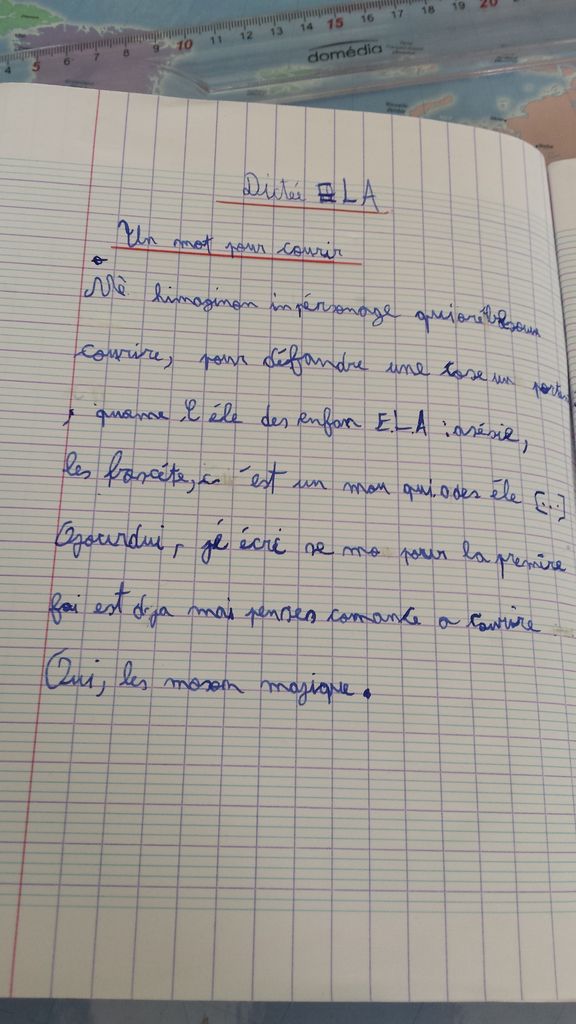 4 5 6 7 8 9 10 11 12 13 14 15 16 17 18 19 20
domédia
Dictée ELA
Un mot pour courir
Mè himaginon inpérsonage qui orè besoin
courire, pour défandre une cose un
, quome l éle des enfan E.L.A : asésie,
les forcéte, c 'est un mou qui odes éle [...]
Ojourdui, jé écri se mo pour la premire
foi est deja mai penses comance a courire
Oui, les moson majique.